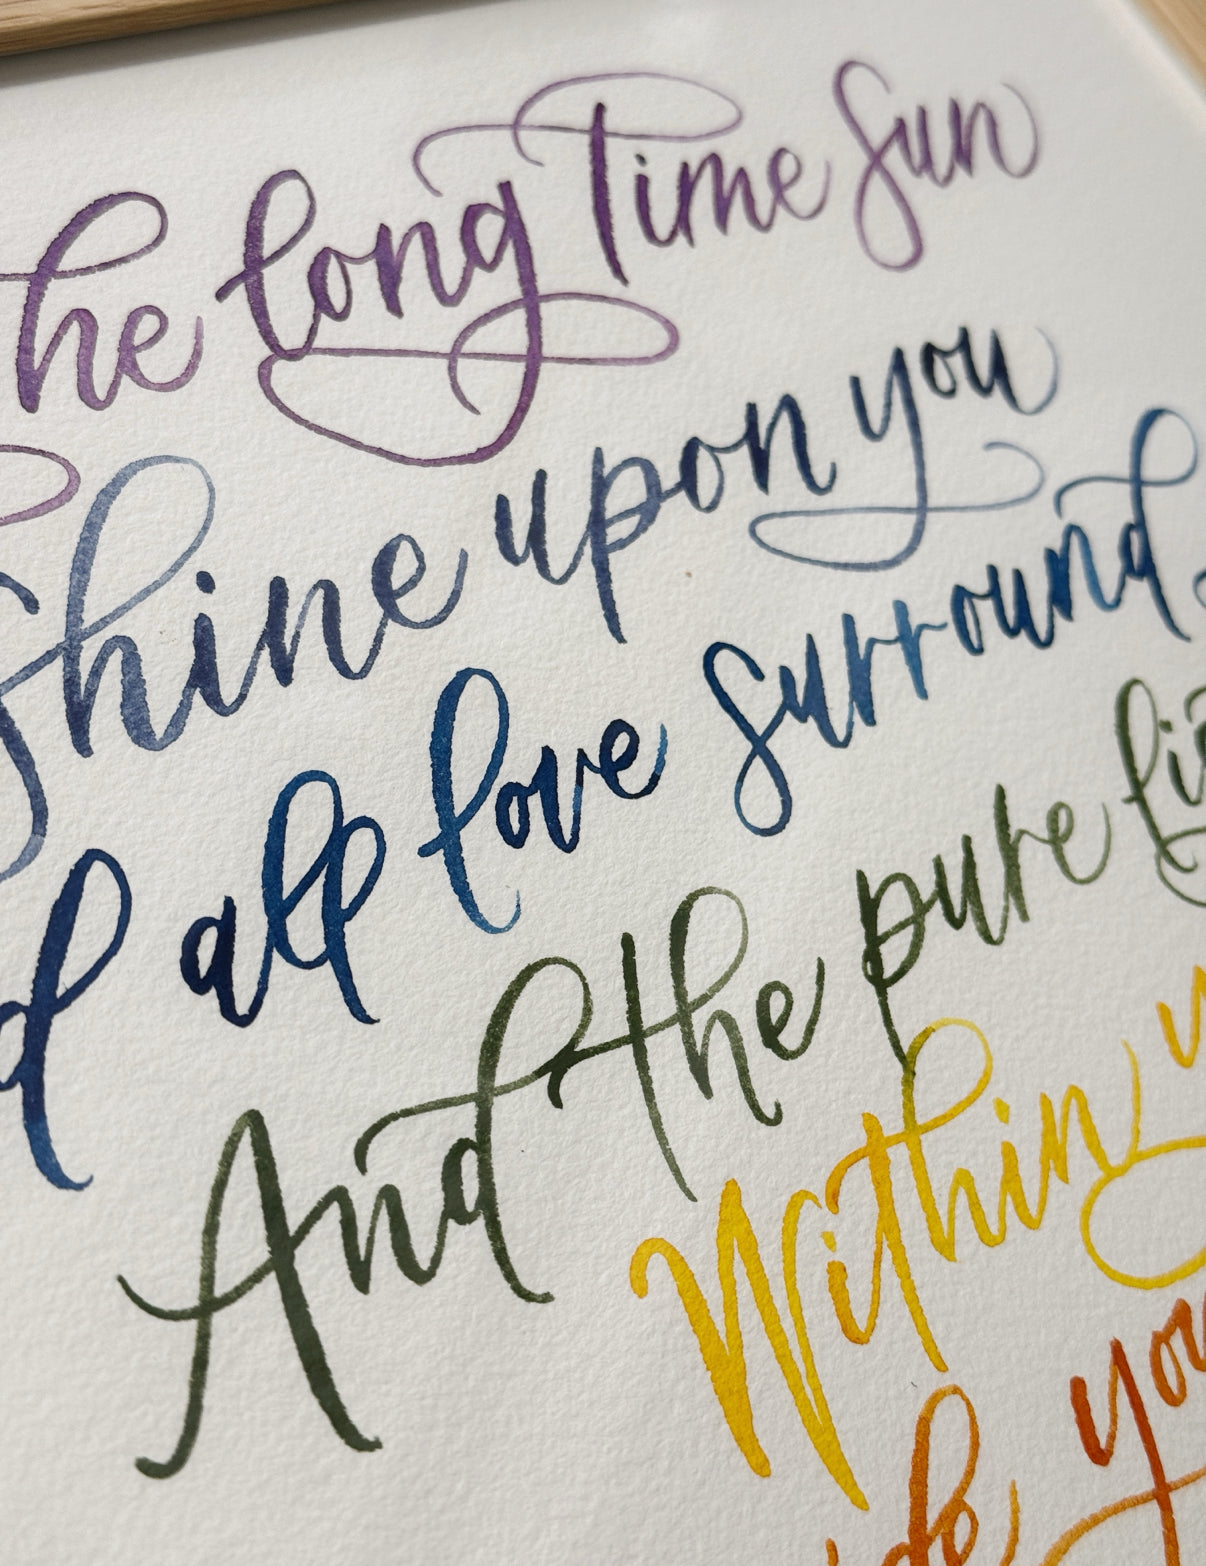 he long Time Sun
Shine upon you
all love surround
And the pure
Within